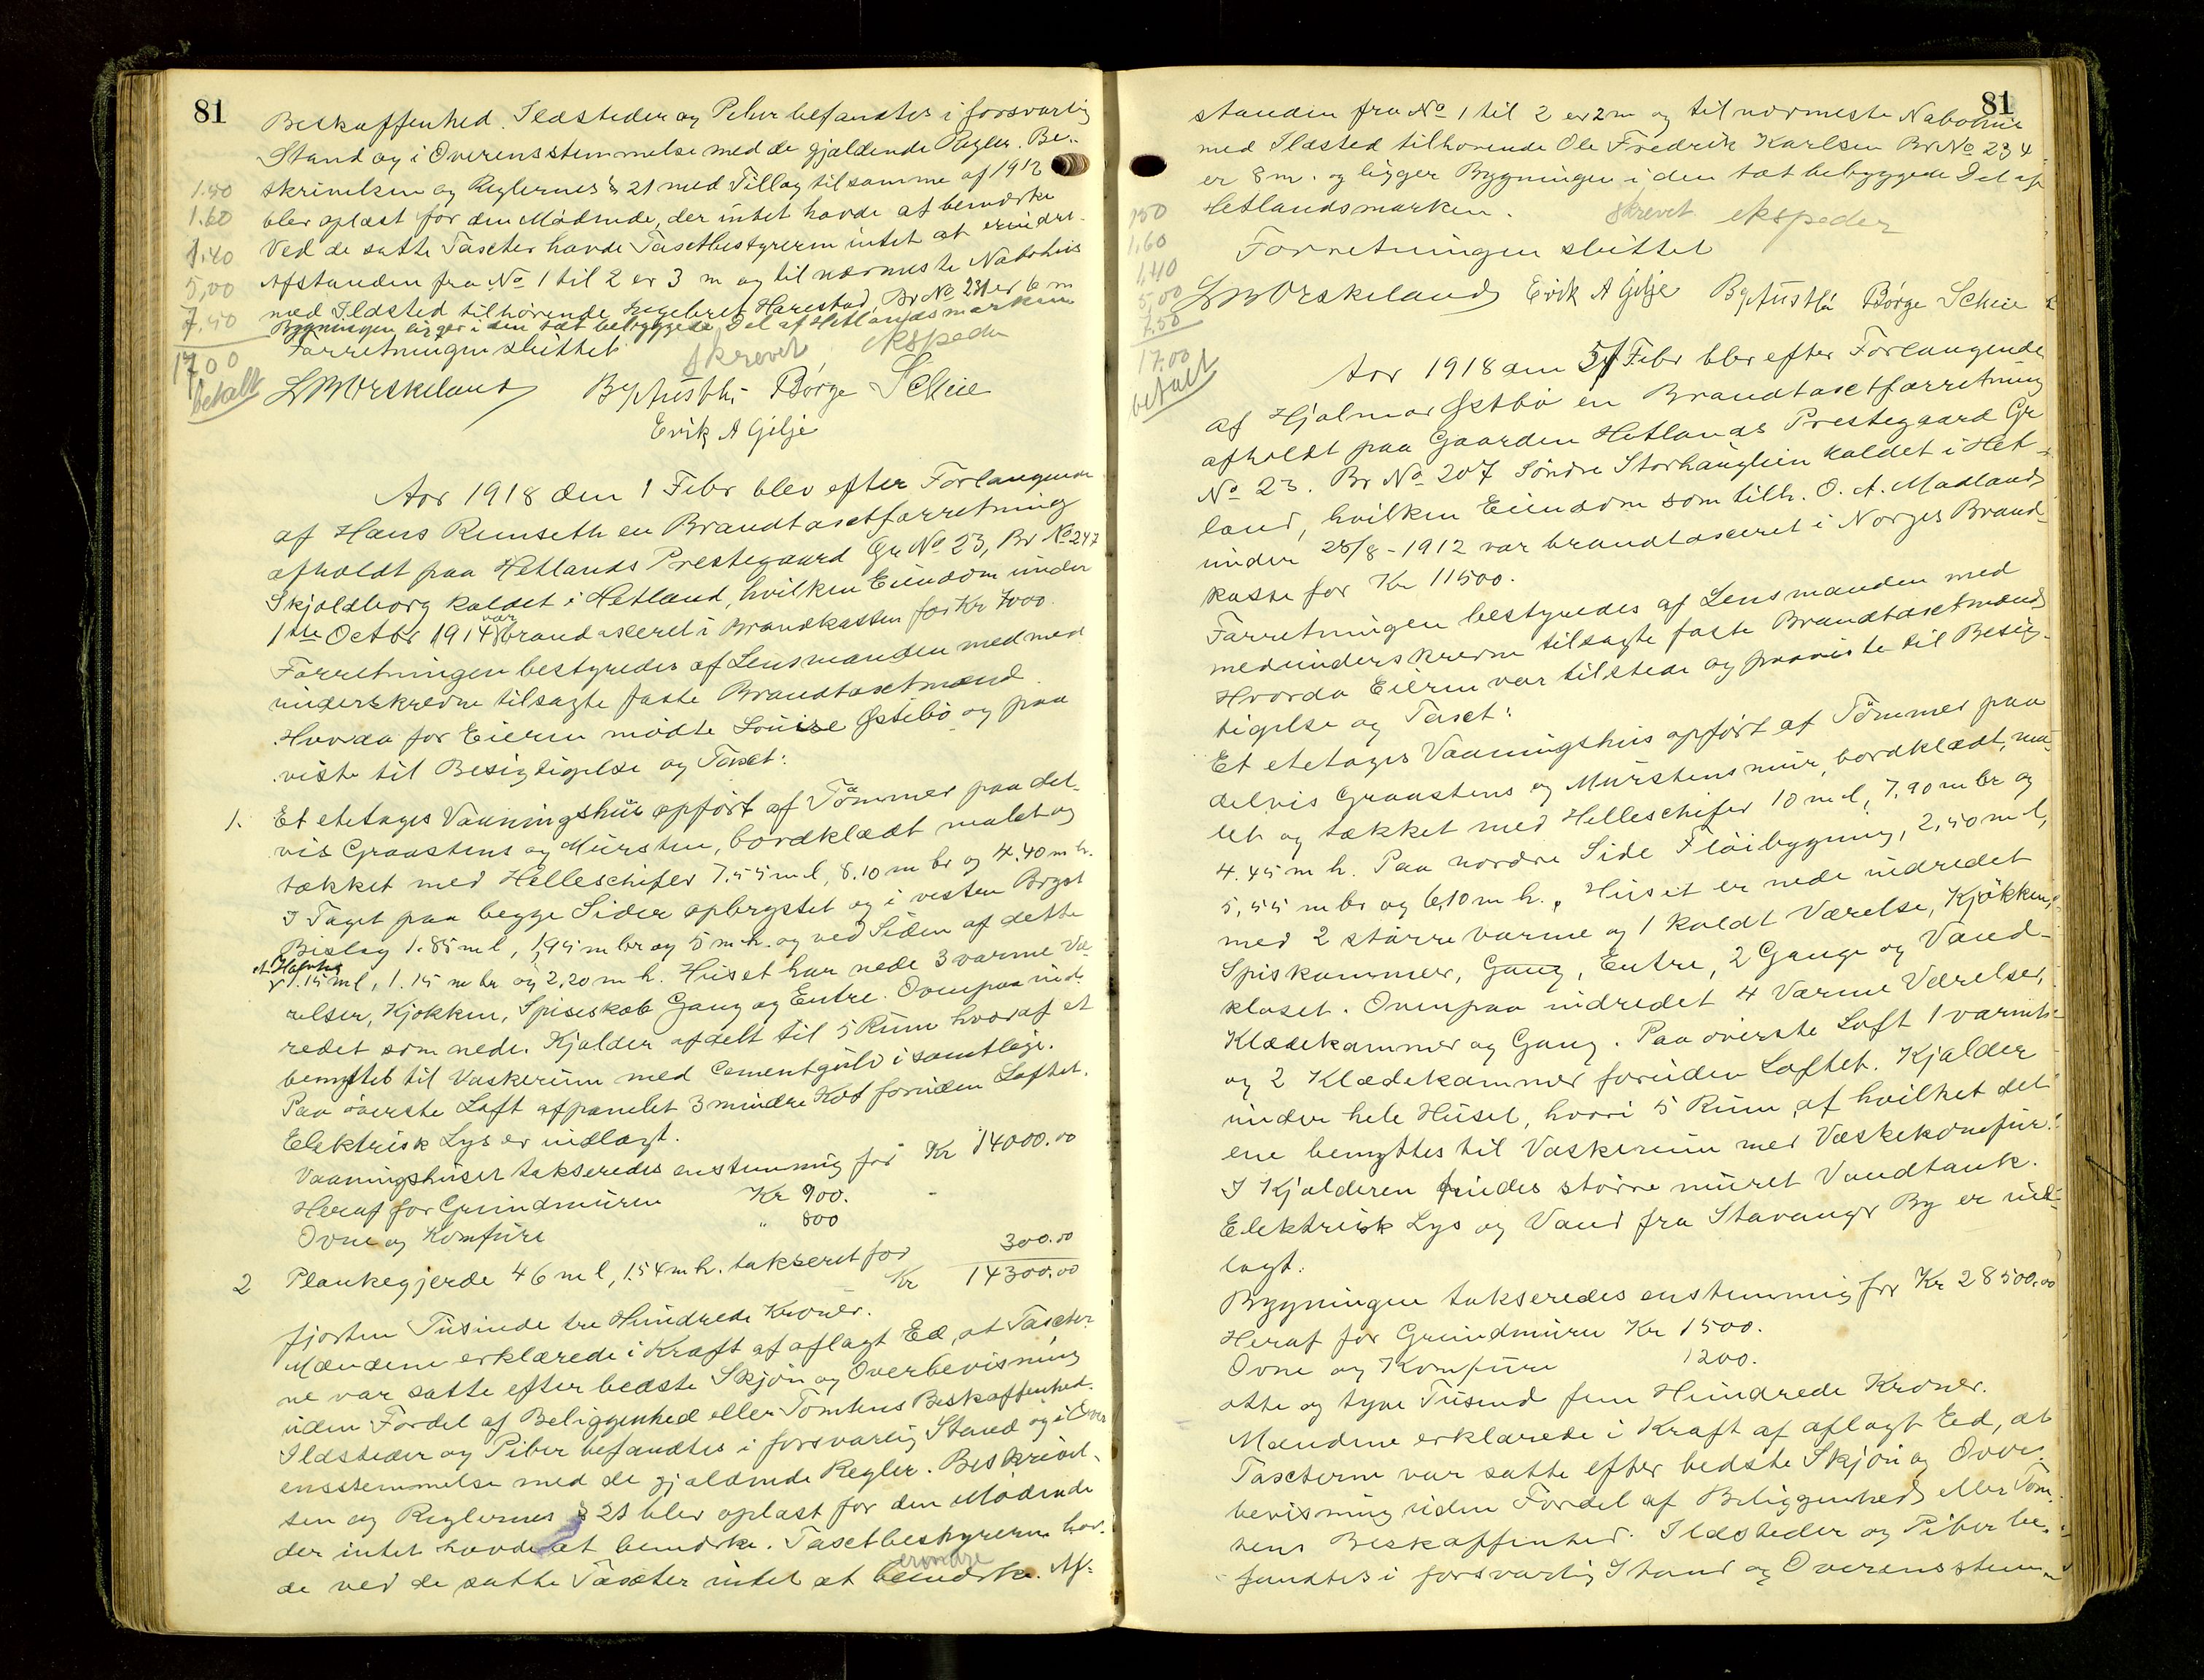 81
Beskaffenhed. Ildsteder og Piber befandtes i forsvarlig
Stand og i Overensstemmelse med de gjældende Regler. Be-
skrivelsen og Reglernes § 21 med Tillæg til samme af 1912
blev oplæst for den Mødende, der intet havde at bemærke
Ved de satte Taxter havde Taxtbestyreren intet at erindre.
Afstanden fra No 1 til 2 er 3 m og til nærmeste Nabohus
med Ildsted tilhørende Ingebret Harestad, Br No 231 er 6 m
Bygningen ligger i den tæt bebyggede Del af Hetlandsmarken
Forretningen sluttet
skrevet ekspeder
1.50
1.60
1.40
5,00
7.50
17.00
betalt
Børge Scheie
Erik A Gilje
Aar 1918 den 1 Febr blev efter Forlangende
af Hans Runseth en Brandtaxtforretning
afholdt paa Hetlands Prestegaard Gr No 23, Br No 247
Skjoldborg kaldet i Hetland, hvilken Eiendom under
1ste Octbr 1914 var brandtaxeret i Brandkassen for Kr 7000.
Forretningen bestyredes af Lensmanden med med
underskrevne tilsagte faste Brandtaxtmænd.
Hvorda for Eieren mødte Louise Østebø og paa
viste til Besigtigelse og Taxt:
1. Et etetages Vaaningshus opført af Tømmer paa del-
vis Graastens og Mursten, bordklædt malet og
tækket med Helleschifer 7.55 m l, 8.10 m br og 4.40 m h.
I Taget paa begge Sider opbrystet og i vestre Bryst
Bislag 1.85 m l, 1,95 m br og 5 m h. og ved Siden af dette
et Halvtag 1.15 m l, 1.15 m br og 2,20 m h. Huset har nede 3 varme Væ-
relser, Kjøkken, Spiseskab Gang og Entre. Ovenpaa ind-
redet som nede. Kjælder afdelt til 5 Rum hvoraf et
benyttet til Vaskerum med Cementgulv i samtlige.
Paa øverste Loft afpanelet 3 mindre Kot foruden Loftet.
Elektrisk Lys er indlagt.
Vaaningshuset takseredes enstemmig for Kr 14000.00
Heraf for Grundmuren Kr 900.
Ovne og Komfure " 800
2 Plankegjerde 46 m l, 1.54 m h. takseret for 300.00
Kr 14300.00
fjorten Tusinde tre Hundrede Kroner.
Mændene erklærede i Kraft af aflagt Ed, at Taxter-
ne var satte efter bedste Skjøn og Overbevisning
uden Fordel af Beliggenhed eller Tomtens Beskaffenhed.
Ildsteder og Piber befandtes i forsvarlig Stand og i Over
ensstemmelse med de gjældende Regler. Beskrivel-
sen og Reglernes § 21 blev oplæst for den Mødende
der intet havde at bemærke. Taxtbestyreren hav-
de ved de satte Taxter intet at bemærke. Af-
erindre
81
standen fra No 1 til 2 er 2 m og til nærmeste Nabohus
med Ildsted tilhørende Ole Fredrik Karlsen Br No 234
er 8 m. og ligger Bygningen i den tæt bebyggede Del af
Hetlandsmarken.
skrevet ekspeder
Forretningen sluttet
150
1.60
1,40
5,00
7.50
17.00
betalt
Erik A Gilje Børge Scheie
Aar 1918 den 5/ Febr blev efter Forlangende
af Hjalmar Østbø en Brandtaxtforretning
afholdt paa Gaarden Hetlands Prestegaard Gr
No 23. Br No 207 Søndre Storhauglien kaldet i Het-
land, hvilken Eiendom som tilh. O. A. Madland
under 28/8 - 1912 var brandtaxeret i Norges Brand-
kasse for Kr 11500.
Forretningen bestyredes af Lensmanden med
medunderskrevne tilsagte faste Brandtaxtmænd
Hvorda Eieren var tilstede og paaviste til Besig-
tigelse og Taxt:
Et etetages Vaaningshus opført af Tømmer paa
delvis Graastens og Murstensmur, bordklædt, ma-
let og tækket med Helleschifer 10 m l, 7.90 m br og
4.45 m h. Paa nordre Side Fløibygning, 2,50 m l,
5,55 m br og 6,10 m h. Huset er nede indredet
med 2 større varme og 1 koldt Værelse, Kjøkken,
Spiskammer, Gang, Entre, 2 Gange og Vand-
kloset. Ovenpaa indredet 4 Varme Værelser,
Klædekammer og Gang. Paa øverste Loft 1 varmt
og 2 Klædekammer foruden Loftet. Kjælder
under hele Huset, hvori 5 Rum, af hvilket det
ene benyttes til Vaskerum med Vaskekomfur.
I Kjælderen findes større muret Vandtank.
Elektrisk Lys og Vand fra Stavanger By er ind-
lagt.
Bygningen takseredes enstemmig for Kr 28500.00
Heraf for Grundmuren Kr 1500.
Ovne og Komfure 1200.
otte og tyve Tusend fem Hundrede Kroner.
Mændene erklærede i Kraft af aflagt Ed, at
Taxterne var satte efter bedste Skjøn og Over-
bevisning uden Fordel af Beliggenhed eller Tom-
tens Beskaffenhed. Ildsteder og Piber be-
fandtes i forsvarlig Stand og Overensstem-